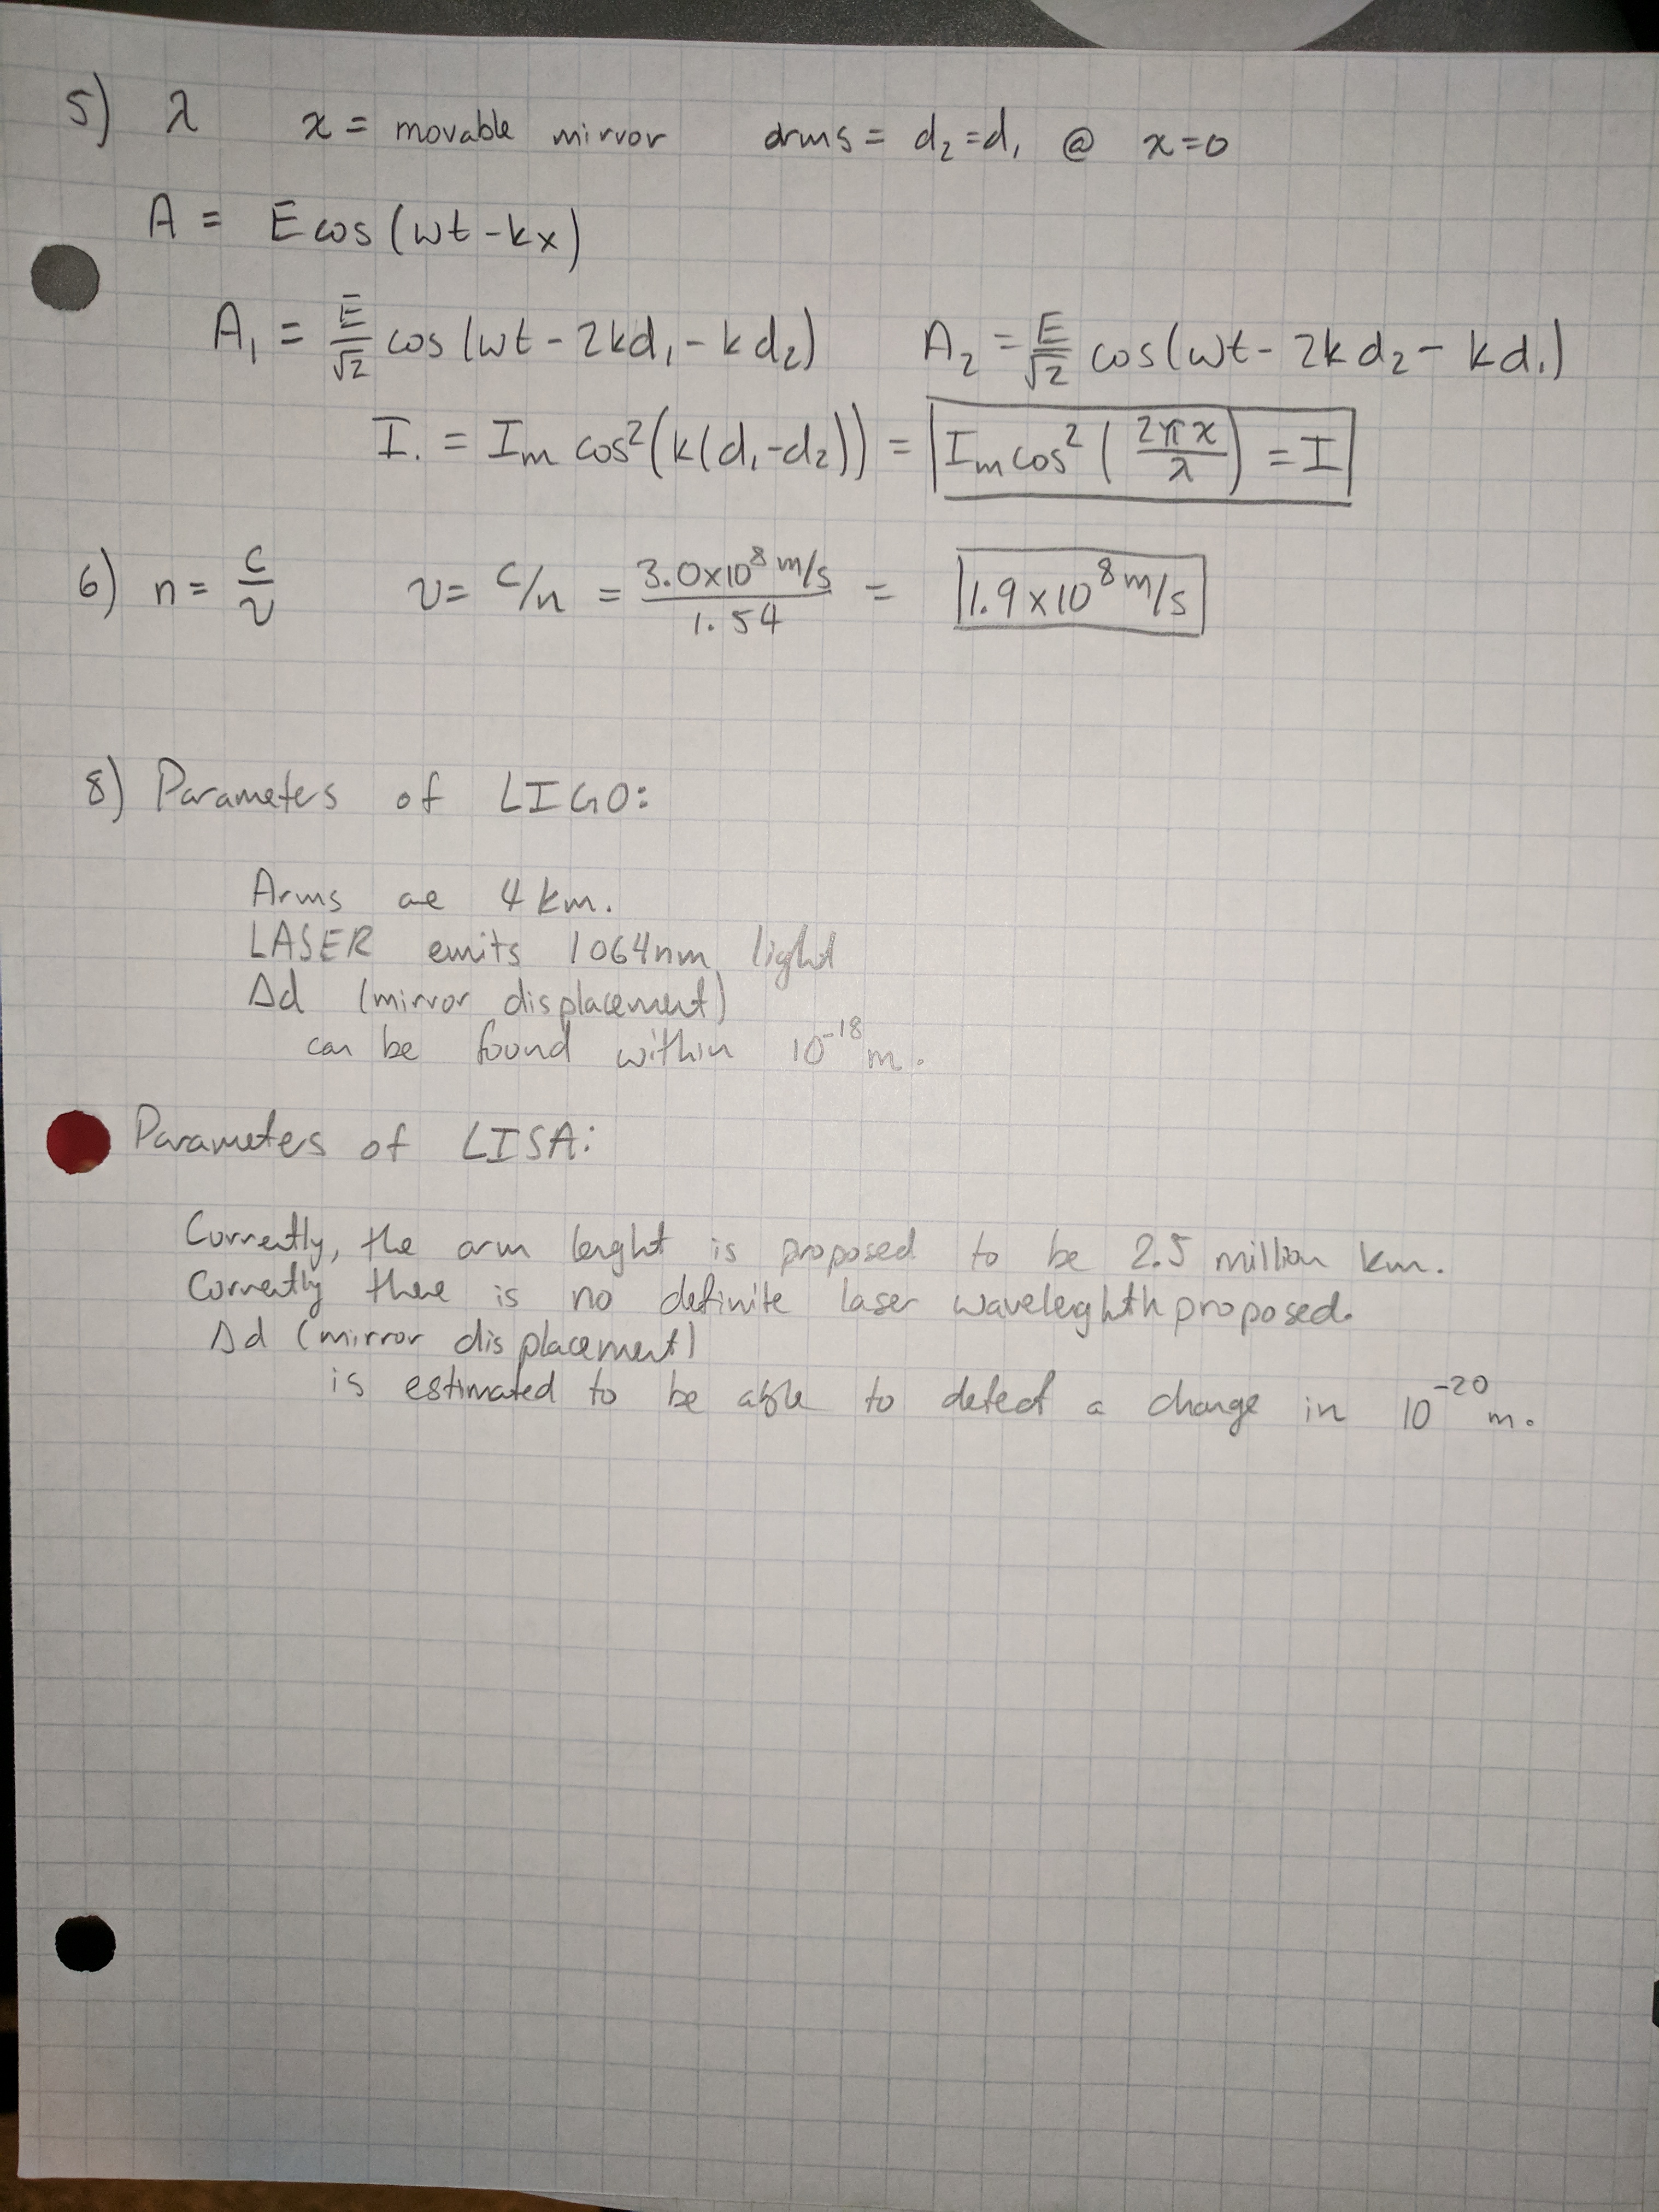 5) λ x = movable mirror arms = d₂=d₁ @ x=0
A = E cos(ωt-kx)
A₁ = E/√2 cos(ωt - 2kd₁ - kd₂) A₂ = E/√2 cos(ωt - 2kd₂ - kd₁)
I. = Iₘ cos²(k(d₁-d₂)) = Iₘcos²(2πx/λ) = I
6) n = c/v v = c/n = 3.0x10⁸ m/s / 1.54 = 1.9x10⁸ m/s
8) Parameters of LIGO:
Arms are 4 km.
LASER emits 1064nm light
Δd (mirror displacement)
can be found within 10⁻¹⁸ m.
Parameters of LISA:
Currently, the arm lenght is proposed to be 2.5 million km.
Currently there is no definite laser waveleghth proposed.
Δd (mirror displacement)
is estimated to be able to detect a change in 10⁻²⁰ m.